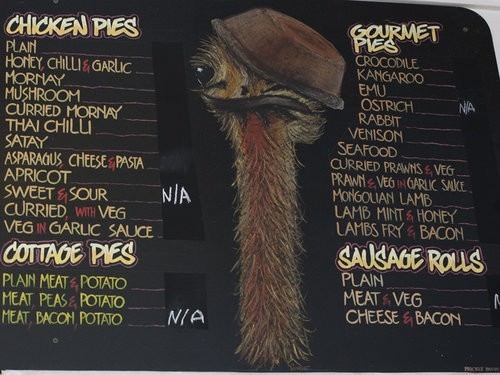 CHICKEN PIES
PLAIN
HONEY, CHILLI & GARLIC
MORNAY
MUSHROOM
CURRIED MORNAY
THAI CHILLI
SATAY
ASPARAGUS, CHEESE & PASTA
APRICOT
SWEET & SOUR
CURRIED, WITH VEG
VEG IN GARLIC SAUCE
N/A
COTTAGE PIES
PLAIN MEAT & POTATO
MEAT, PEAS & POTATO
MEAT, BACON POTATO
N/A
GOURMET
PIES
CROCODILE
KANGAROO
EMU
OSTRICH
RABBIT
VENISON
SEAFOOD
CURRIED PRAWNS & VEG
PRAWN & VEG IN GARLIC SAUCE
MONGOLIAN LAMB
LAMB MINT & HONEY
LAMBS FRY & BACON
N/A
SAUSAGE ROLLS
PLAIN
MEAT & VEG
CHEESE & BACON
N